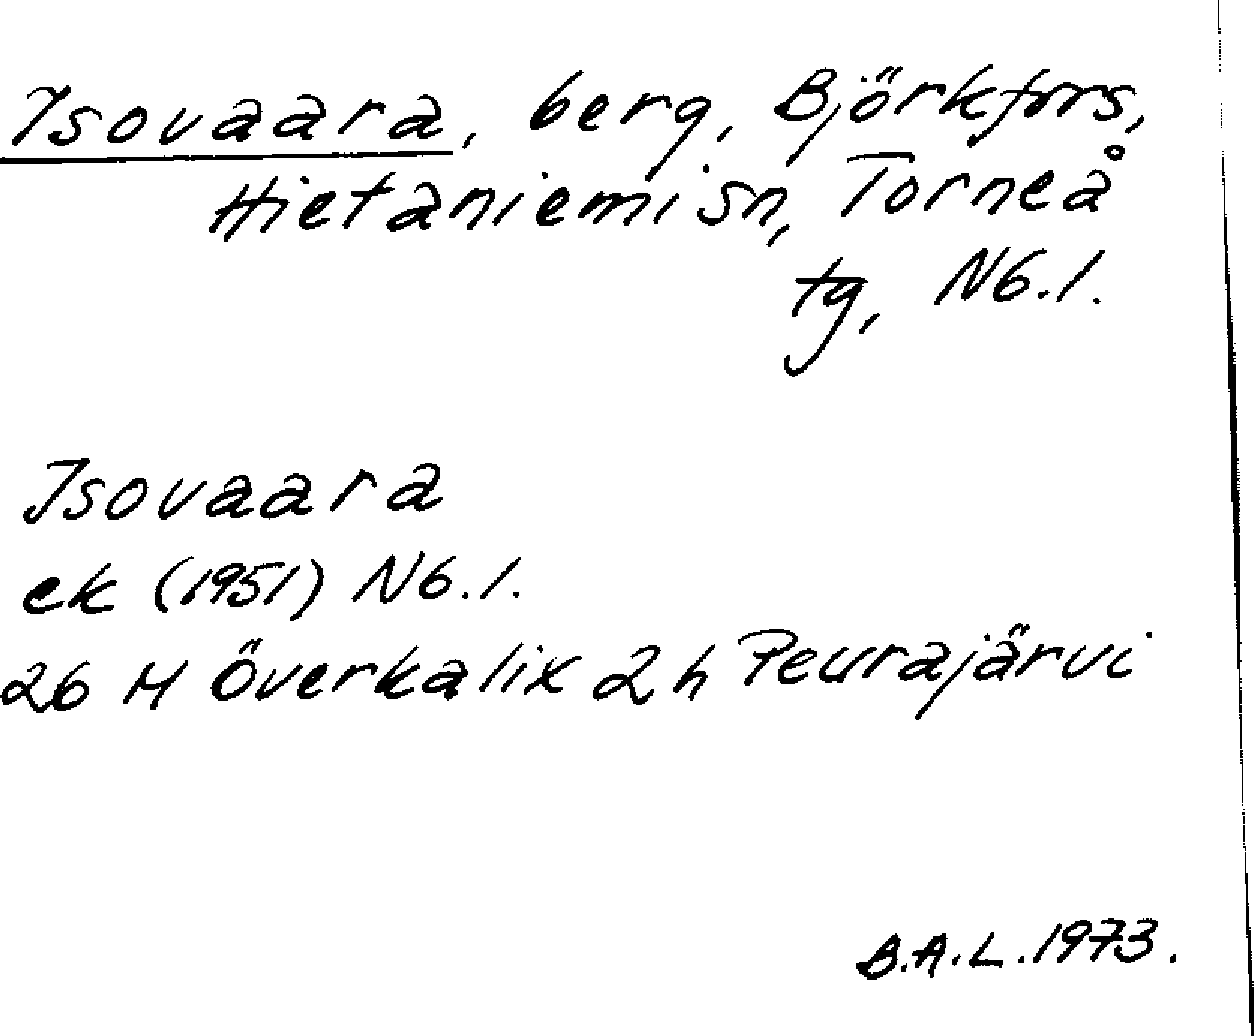 Isovaara, berg, Björkfors,
Hietaniemi sn, Torneå
tg, N6.1.
Isovaara
ek (1951) N6.1.
26 M Överkalix 2h Peurajärvi
B.A.L. 1973.